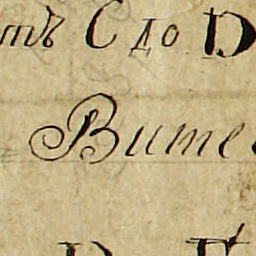 тъ С до D
Вите